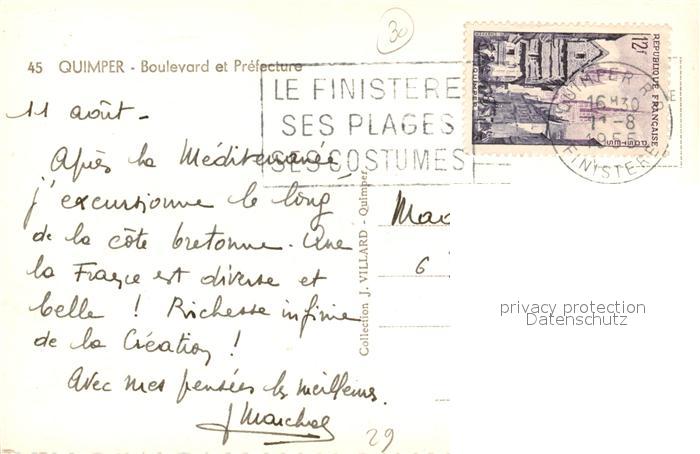 30
45 QUIMPER - Boulevard et Préfecture
LE FINISTERE
SES PLAGES
SES COSTUMES
12f
REPUBLIQUE FRANÇAISE
POSTES
QUIMPER
QUIMPER R.P.
16H30
11-8
1955
FINISTERE
11 août -
Après la Méditerranée
j'excursionne le long
de la côte bretonne. Que
la France est diverse et
belle ! Richesse infinie
de la Création !
Avec mes pensées les meilleures.
J Marchal
Collection J. VILLARD - Quimper
Mad
6
29
privacy protection
Datenschutz